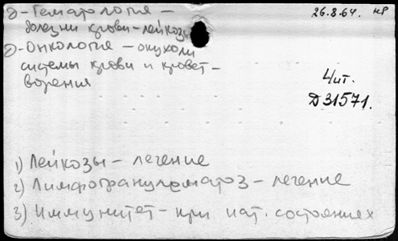 2-Гематология —
болезни крови-лейкозы
26.8.64. нр
2-Онкология — опухоли
системы крови и кровет-
ворения
Чит.
Д31571.
1) Лейкозы — лечение
2) Лимфогрануломатоз — лечение
3) Иммунитет — при пат. состояниях